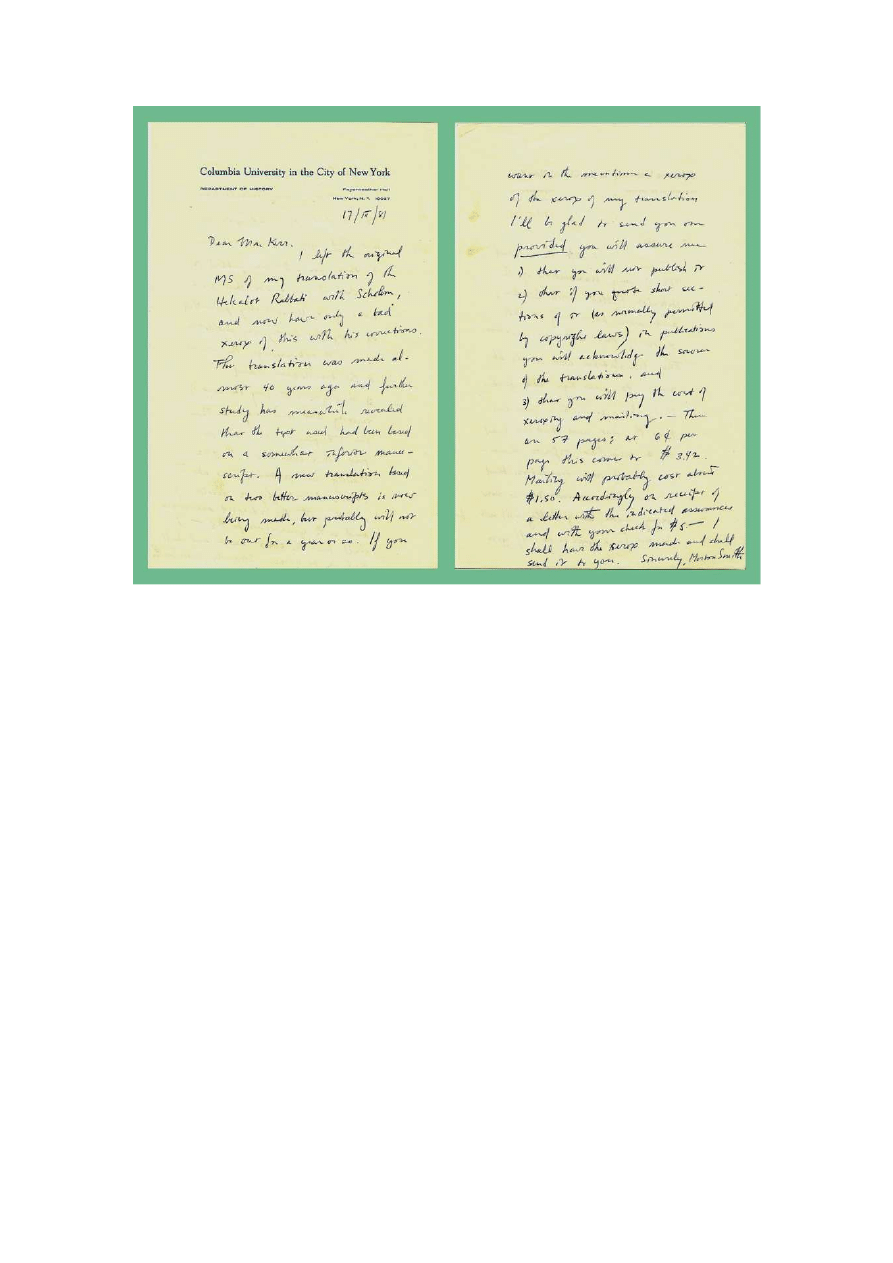 Columbia University in the City of New York
DEPARTMENT OF HISTORY
Fayerweather Hall
New York, N.Y. 10027
17/IV/81
Dear Mr. Kerr,
I left the original
MS of my translation of the
Hekalot Rabbati with Scholem,
and now have only a bad
xerox of this with his corrections.
The translation was made al-
most 40 years ago and further
study has meanwhile revealed
that the text used had been based
on a somewhat inferior manu-
script. A new translation based
on two better manuscripts is now
being made, but probably will not
be out for a year or so. If you
want in the meantime a xerox
of the xerox of my translation
I'll be glad to send you one
provided you will assure me
1) that you will not publish it
2) that if you quote short sec-
tions of it (as normally permitted
by copyright laws) in publications
you will acknowledge the source
of the translations, and
3) that you will pay the cost of
xeroxing and mailing. — There
are 57 pages; at 6¢ per
page this comes to $3.42.
Mailing will probably cost about
$1.50. Accordingly on receipt of
a letter with the indicated assurances
and with your check for $5.— I
shall have the xerox made and shall
send it to you. Sincerely, Morton Smith